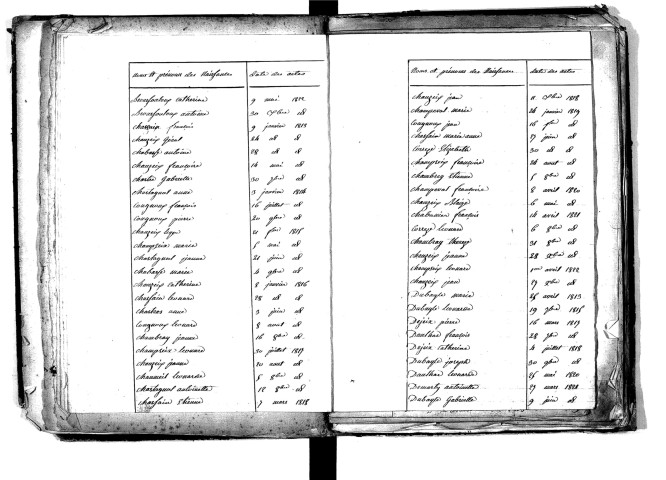 Noms et prénoms des Naissances Date des actes
Brossfautoux Catherine 9 mai 1812
Brossfautoux antoine 30 Xbre id
chauzeix françois 9 janvier 1813
chauzeix 24 id id
chabasse antoine 28 id id
chauzeix françoise 14 mai id
Gabrielle 30 9bre id
chastagnat anne 3 janvier 1814
Longueux françois 16 juillet id
Longueux pierre 20 9bre id
chauzeix 21 1815
champseix marie 5 mai id
chastagnat jeanne 21 juin id
chabasse marie 4 9bre id
chauzeix Catherine 8 janvier 1816
chassain leonard 28 id id
anne 3 juin id
Longueux leonard 8 aout id
chambray jeanne 16 8bre id
champseix leonard 30 juillet 1817
chauzeix jeanne 20 aout id
leonarde 5 8bre id
chastagnat antoinette 18 8bre id
chassain Etienne 7 mars 1818
Noms et prénoms des Naissances Date des actes
chauzeix jean 11 Xbre 1818
champeval marie 24 janvier 1819
Longueux jean 16 id
chassain marie anne 27 juin id
Correze Elizabeth 30 id id
champseix françoise 24 aout id
Etienne 5 8bre id
champeval françoise 8 avril 1820
chauzeix Blaize 6 mai id
françois 16 avril 1821
Correze leonard 6 8bre id
chambray 31 8bre id
chauzeix jeanne 28 Xbre id
champseix leonard 1er avril 1822
chauzeix jean 27 Xbre id
Dubayle marie 25 avril 1813
Dubayle leonarde 19 9bre 1815
Dejoix pierre 16 mars 1817
françois 28 id
Dejoix Catherine 4 juillet 1818
Dubayle joseph 30 9bre id
leonarde 25 mai 1820
antoinette 27 mars 1822
Dubayle Gabrielle 9 juin id